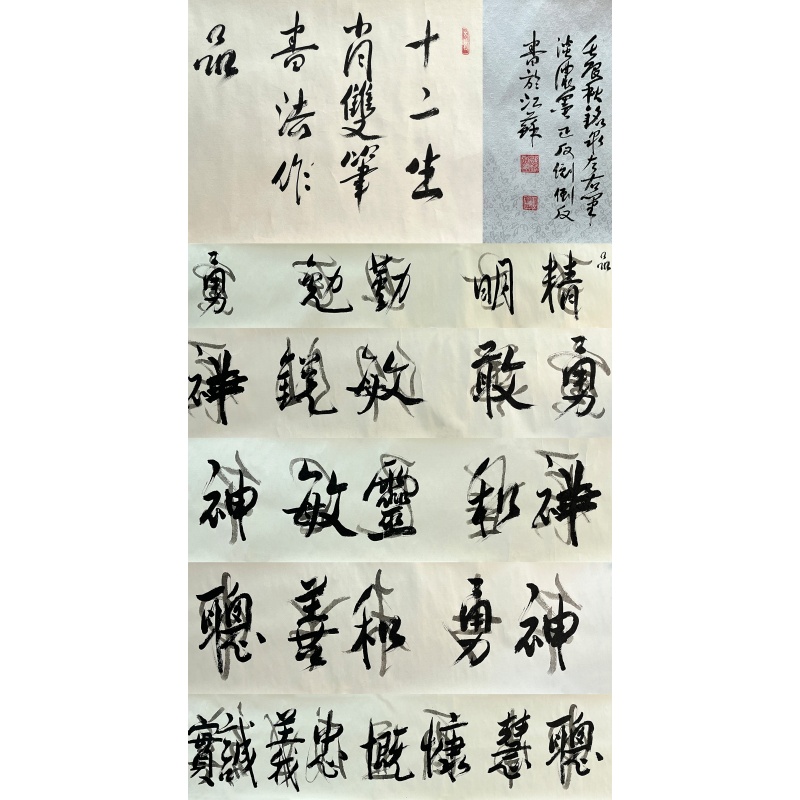 壬寅秋銘泉左右筆
淡濃墨正反倒倒反
書於江蘇
十二生
肖雙筆
書法作
品
品 精明 勤勉 勇
勇敢 敏鋭 祥
祥和 靈敏 神
神勇 和善 聰
聰慧 慷慨 忠義 誠實